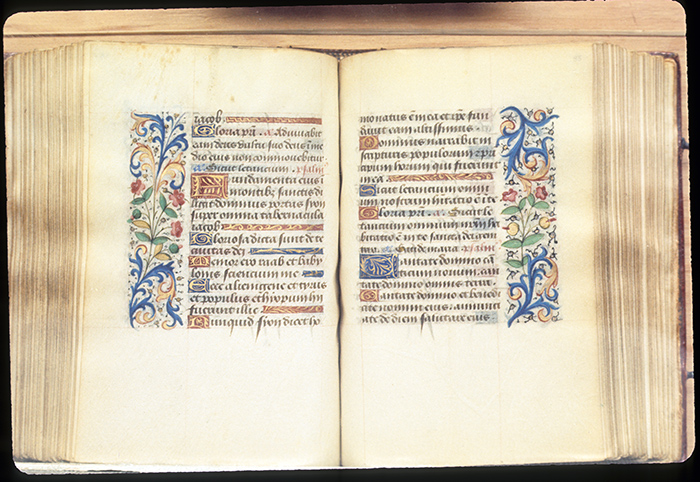 Jacob
Gloria pri. a. Adiuvabit
eam deus vultu suo deus i me
dio eius non commovebitur
a. Sicut letantium. psalm
Fundamenta eius i
montib' sanctis di
ligit dominus portas syon
super omnia tabernacula
Jacob
Gloriosa dicta sunt de te
civitas dei
Memor ero raab et baby
lonis scientium me
Ecce alienigene et tyrus
et populus ethiopum hii
fuerunt illic
Nunquid syon dicet ho
mo natus ē in ea et ipe fun
davit eam altissimus
Dominus narrabit in
scripturis populorum et pri
cipum horum qui fuerunt
in ea
Sicut letantium omni
um nostrum habitatio ē in te
Gloria pri. a. Sicut le
tantium omnium nostrum ha
bitatio ē in te sancta dei geni
psalm
Cantate domino cā
ticum novum can
tate domino omnis terra
Cantate domino et benedi
nomini eius annunci
ate de diem salutare eius